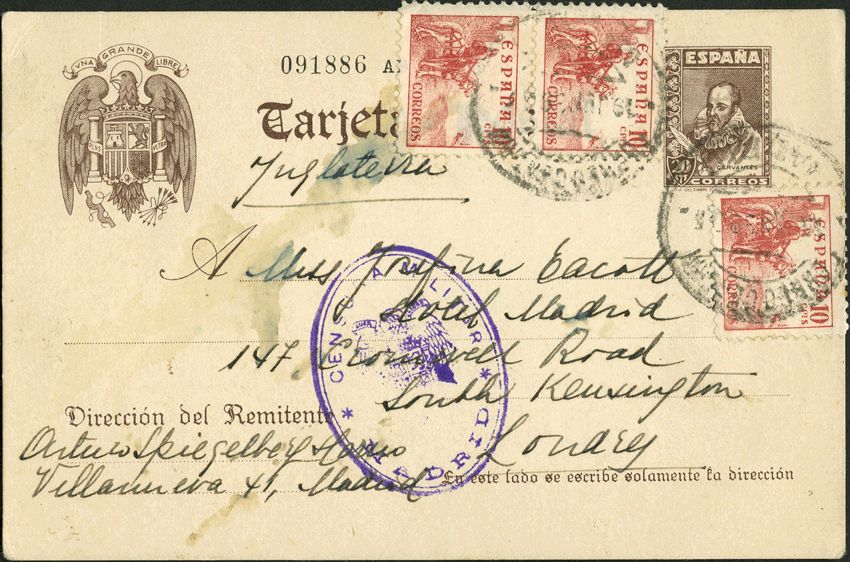 VNA GRANDE LIBRE
091886
Tarjeta
PLVS VLTRA
ESPAÑA
CERVANTES
20
CORREOS
ESPAÑA
CORREOS
10
ESPAÑA
CORREOS
10
Inglaterra
ESPAÑA
CORREOS
10
A Miss Josefina Eacott
Hotel Madrid
147 Cromwell Road
South Kensington
Londres
CENSURA MILITAR
* MADRID *
Dirección del Remitente
Arturo Spiegelberg
Villanueva 41, Madrid
En este lado se escribe solamente la dirección